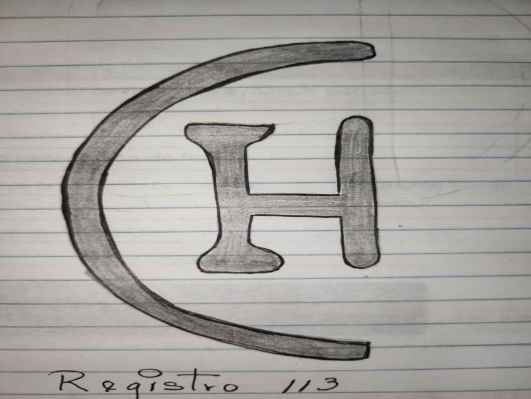 CH
Registro 113